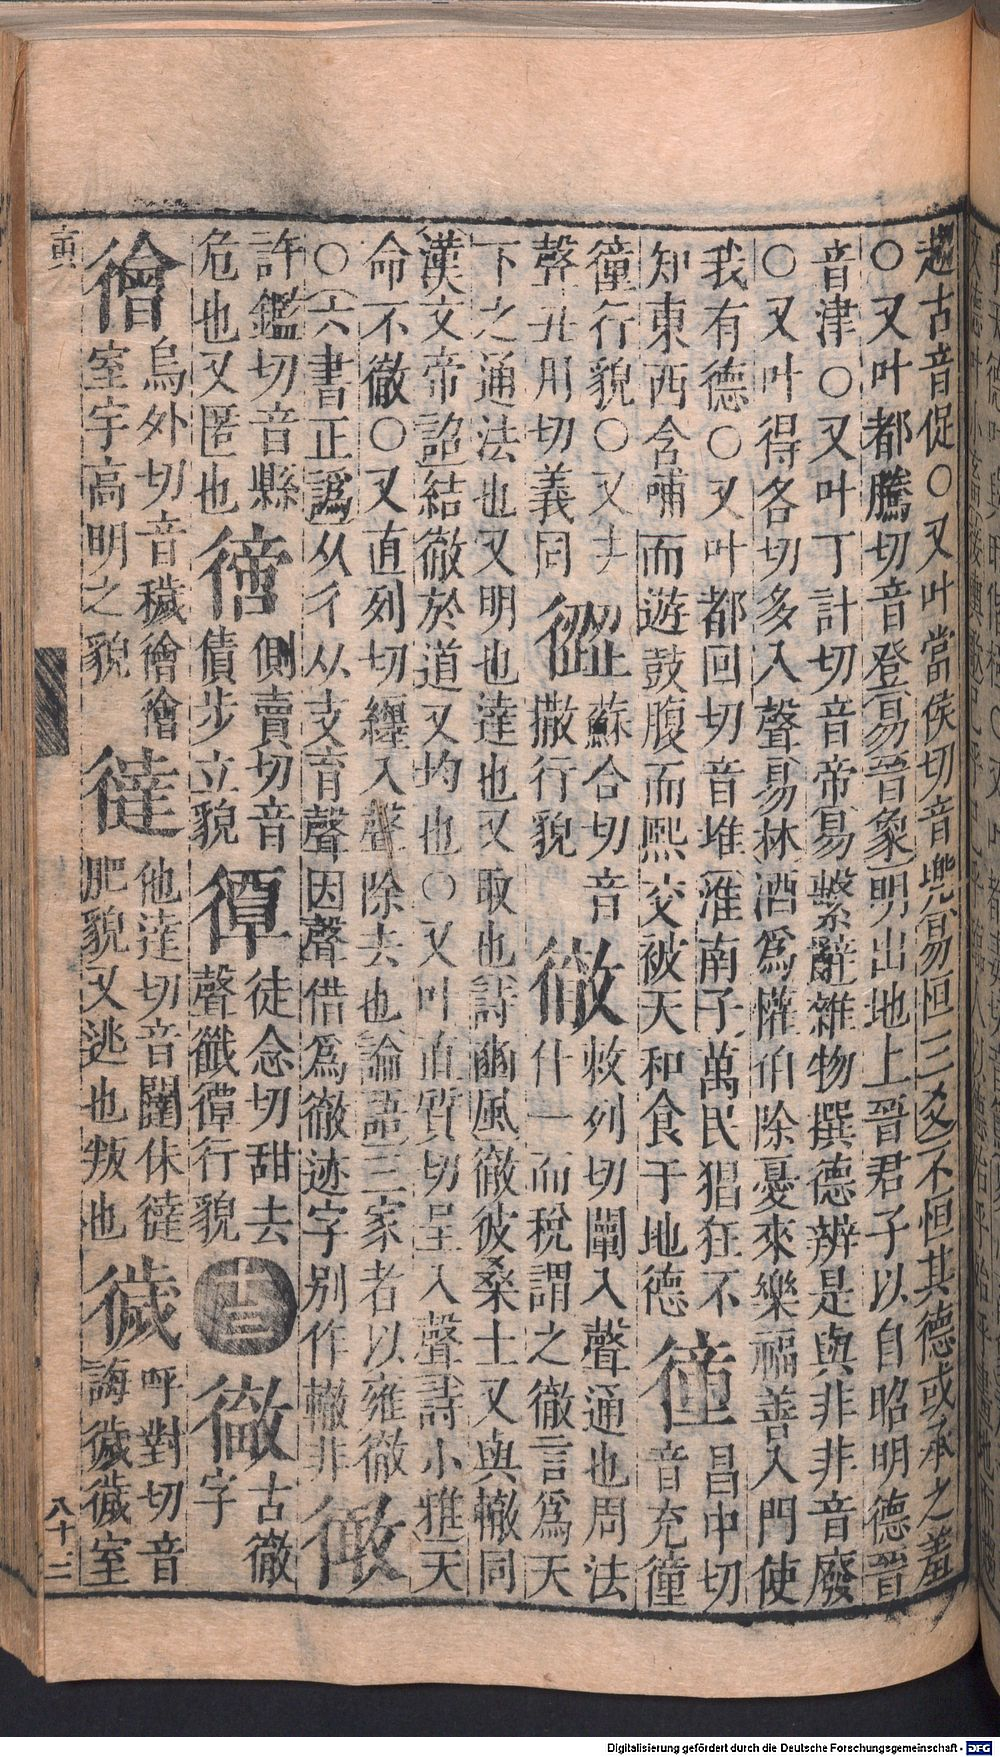 趨古音促○又叶當侯切音兠易恒三爻不恒其德或承之羞
○又叶都騰切音登易晉象明出地上晉君子以自昭明德晉
音津○又叶丁計切音帝易繫辭雜物撰德辨是與非非音廢
○又叶得各切多入聲易林酒爲懽伯除憂來樂福善入門使
我有德○又叶都回切音堆淮南子萬民猖狂不
知東西含哺而遊鼓腹而熙交被天和食于地德
徸
昌中切
音充徸
徸行貌○又去
聲丑用切義同
𢖝
蘇合切音
撒行貌
徹
敕列切闡入聲通也周法
什一而稅謂之徹言爲天
下之通法也又明也達也又取也詩豳風徹彼桑土又與轍同
漢文帝詔結徹於道又均也○又叶直質切呈入聲詩小雅天
命不徹○又直列切纏入聲除去也論語三家者以雍徹
○六書正譌从彳从攴育聲因聲借爲徹迹字别作轍非
㣳
許鑑切音縣
危也又匿也
側賣切音
債步立貌
徒念切甜去
聲䤘𢕪行貌
十三
古徹
字
襘
烏外切音穢徻徻
室宇高明之貌
㣵
他達切音闥㑜㣵
肥貌又逃也叛也
呼對切音
誨
室
寅
八十二
Digitalisierung gefördert durch die Deutsche Forschungsgemeinschaft - DFG